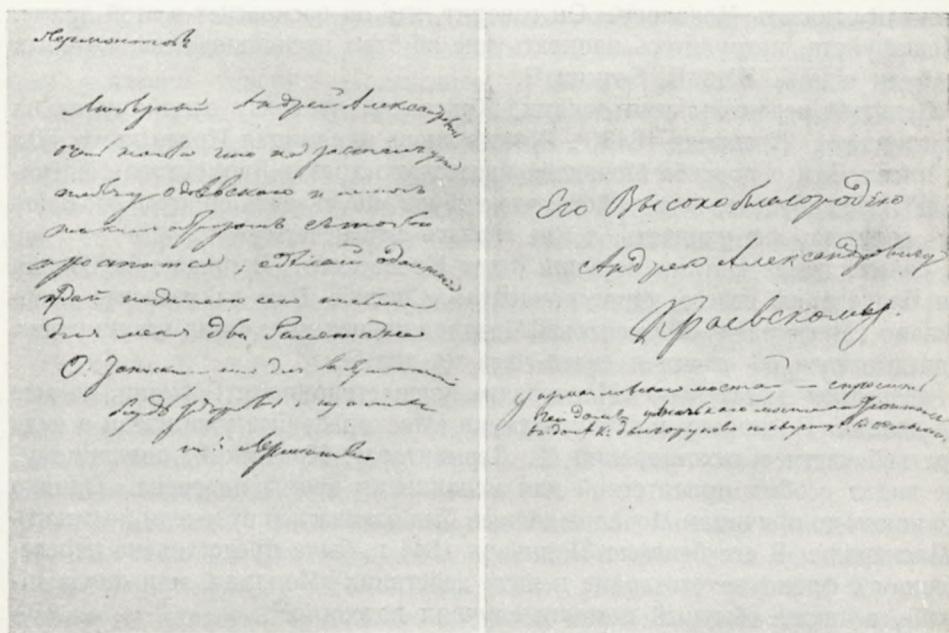 Лермонтовъ
Любезный Андрей Александровичь
очень жалко что не засталъ уже
тебя у Одоевскаго и не могъ
такимъ образомъ съ тобою
проститься; сделай одолженіе
отдай подателю сего письма
для меня два билета на
О. Записки — это для бабушки
Будь здоровъ и щастливъ
твой Лермонтовъ
Его Высокоблагородію
Андрею Александровичу
Краевскому.
моста — спросить
моста